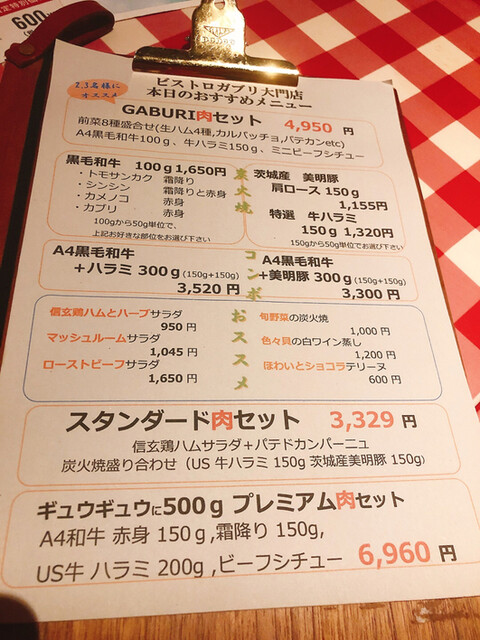 600
2,3名様に
オススメ
ビストロガブリ大門店
本日のおすすめメニュー
GABURI肉セット 4,950 円
前菜8種盛合せ(生ハム4種,カルパッチョ,パテカンetc)
A4黒毛和牛100g、牛ハラミ150g、ミニビーフシチュー
炭火焼
黒毛和牛 100g1,650円
・トモサンカク 霜降り
・シンシン 霜降りと赤身
・カメノコ 赤身
・カブリ 赤身
100gから50g単位で、
上記お好きな部位をお選び下さい
茨城産 美明豚
肩ロース 150g
1,155円
特選 牛ハラミ
150g 1,320円
150gから50g単位でお選び下さい
コンボ
A4黒毛和牛
+ハラミ 300g(150g+150)
3,520 円
A4黒毛和牛
+美明豚 300g(150g+150)
3,300 円
おススメ
信玄鶏ハムとハーブサラダ
950 円
マッシュルームサラダ
1,045 円
ローストビーフサラダ
1,650 円
旬野菜の炭火焼
1,000 円
色々貝の白ワイン蒸し
1,200 円
ほわいとショコラテリーヌ
600 円
スタンダード肉セット 3,329 円
信玄鶏ハムサラダ+パテドカンパーニュ
炭火焼盛り合わせ(US 牛ハラミ 150g 茨城産美明豚 150g)
ギュウギュウに500g プレミアム肉セット
A4和牛 赤身 150g,霜降り 150g,
US牛 ハラミ 200g ,ビーフシチュー 6,960 円